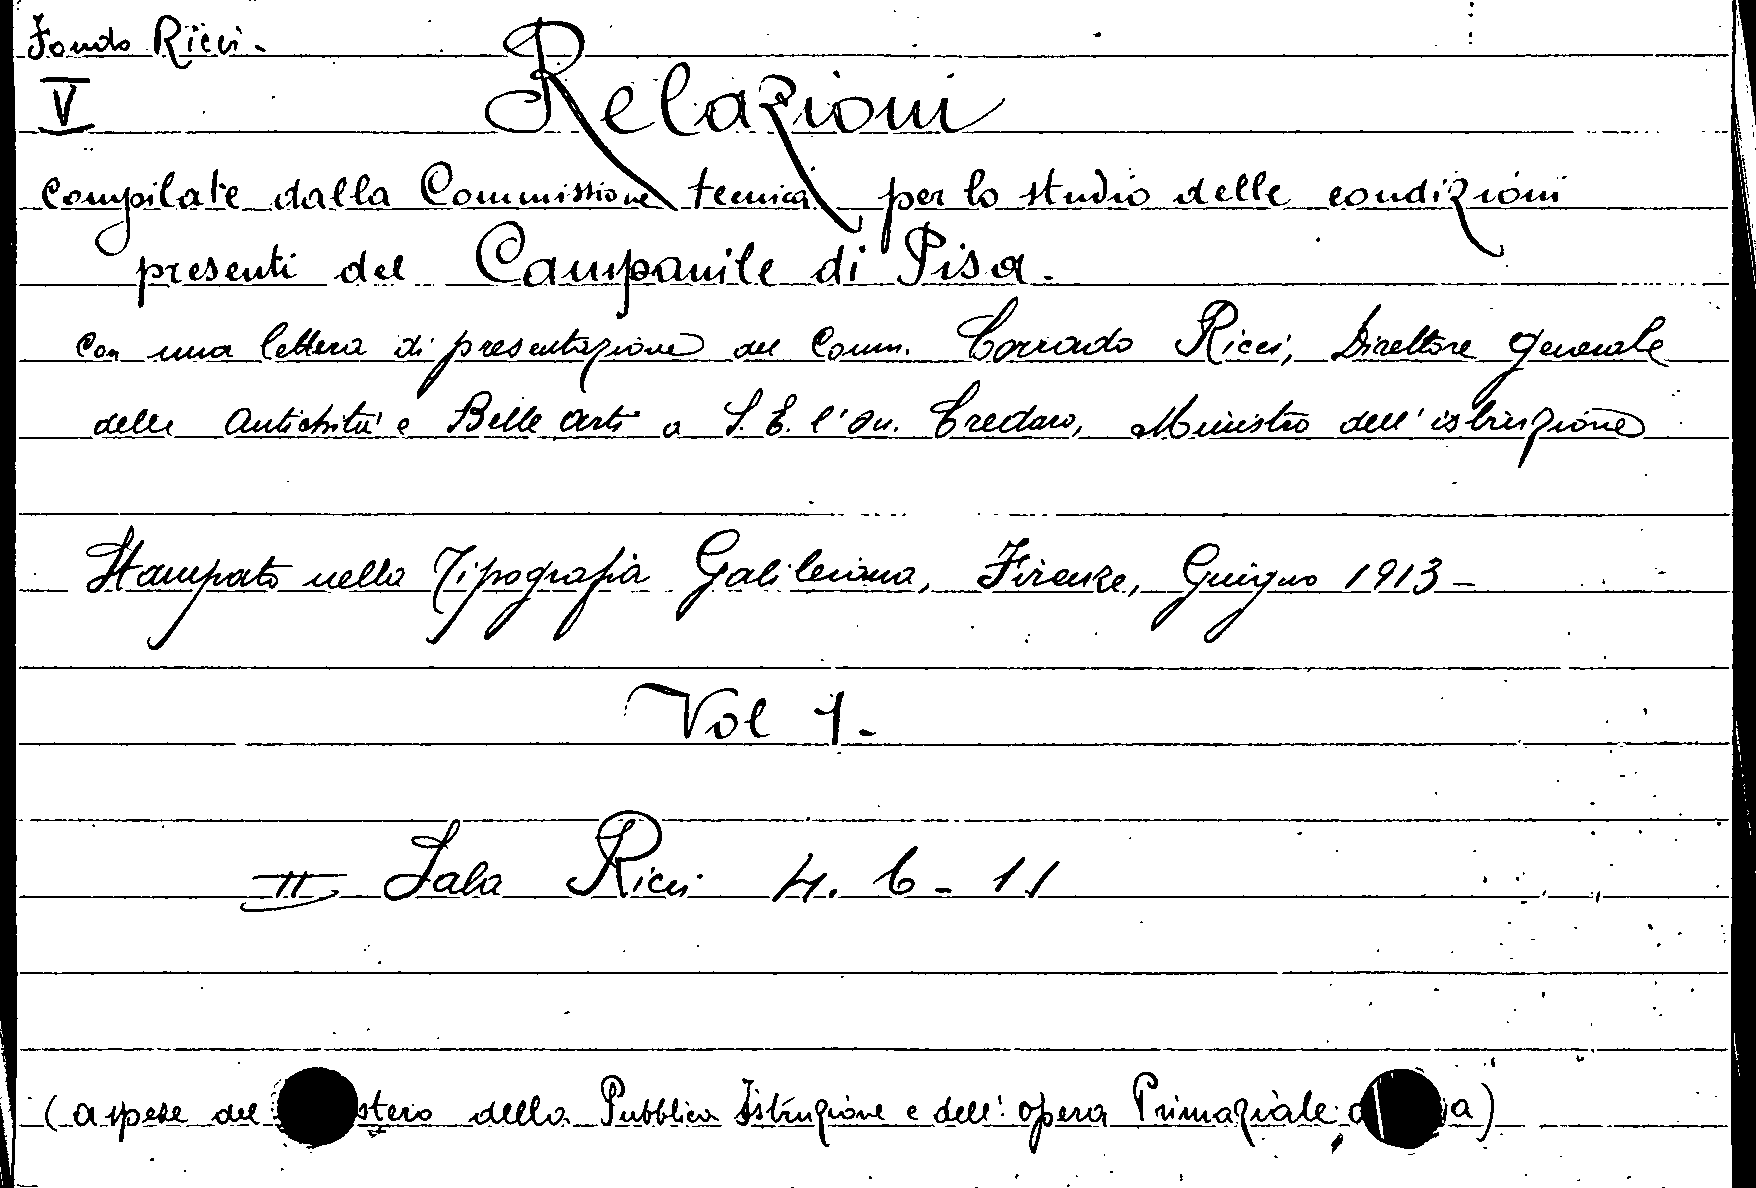 Fondo Ricci.
V
Relazioni
Compilate dalla Commissione tecnica per lo studio delle condizioni
presenti del Campanile di Pisa.
con una lettera di presentazione del Comm. Corrado Ricci, Direttore generale
delle Antichità e Belle arti a S. E. l'On. Credaro, Ministro dell'istruzione
Stampato nella Tipografia Galileiana, Firenze, Giugno 1913 -
Vol 1.
II Sala Ricci 4. 6 - 11
(a spese del stero della Pubblica Istruzione e dell'opera Primaziale d a)